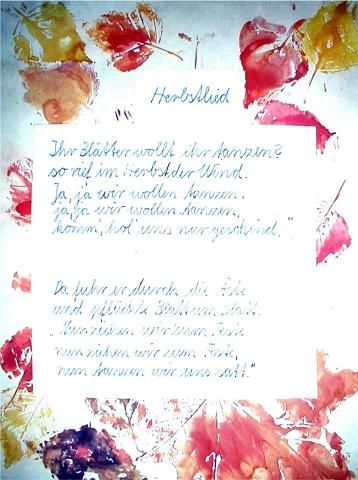 Herbstlied
Ihr Blätter wollt ihr tanzen?
so rief im Herbst der Wind.
Ja, ja wir wollen tanzen.
ja, ja wir wollen tanzen,
komm', hol' uns nur geschwind."
Da fuhr er durch die Äste
und pflückte Blatt um Blatt.
"Nun ziehen wir zum Feste
nun ziehen wir zum Feste,
nun tanzen wir uns satt."